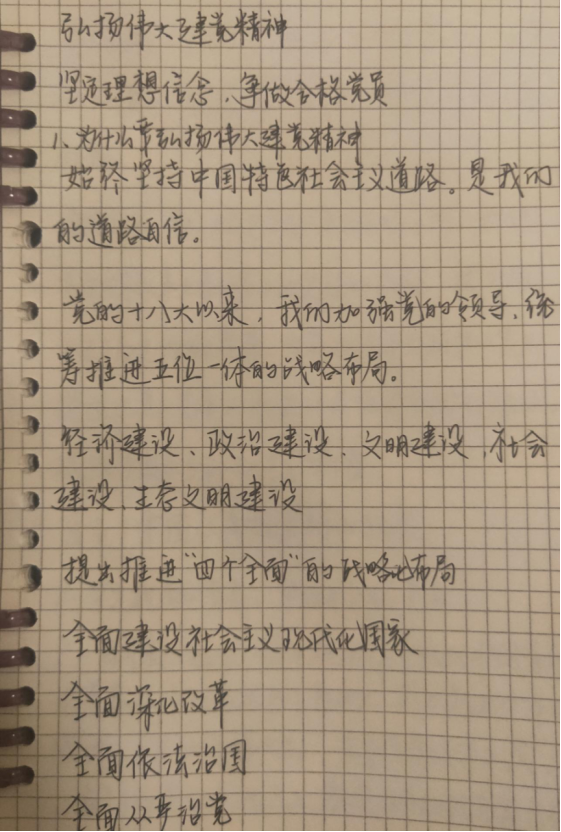 弘扬伟大建党精神
坚定理想信念、争做合格党员
1、为什么要弘扬伟大建党精神
始终坚持中国特色社会主义道路。是我们
的道路自信。
党的十八大以来，我们加强党的领导、统
筹推进五位一体的战略布局。
经济建设、政治建设、文明建设、社会
建设、生态文明建设
提出推进"四个全面"的战略化布局
全面建设社会主义现代化国家
全面深化改革
全面依法治国
全面从严治党